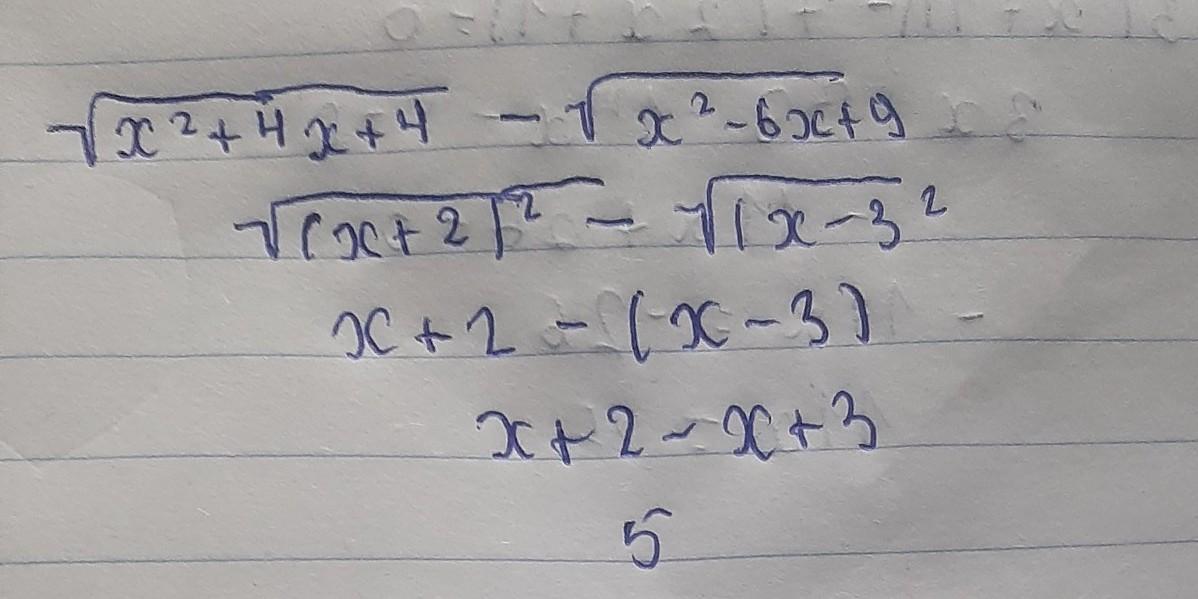 √x²+4x+4 - √x²-6x+9
√(x+2)² - √(x-3²
x+2 - (x-3)
x+2-x+3
5